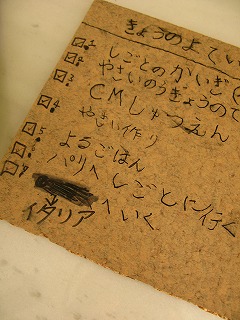 きょうのよてい
1 しごとのかいぎ
2 やさいのうぎょうので
3 CMしゅつえん
4 やさい作り
5 よるごはん
6 パリへしごとに行く
7 イタリアへいく